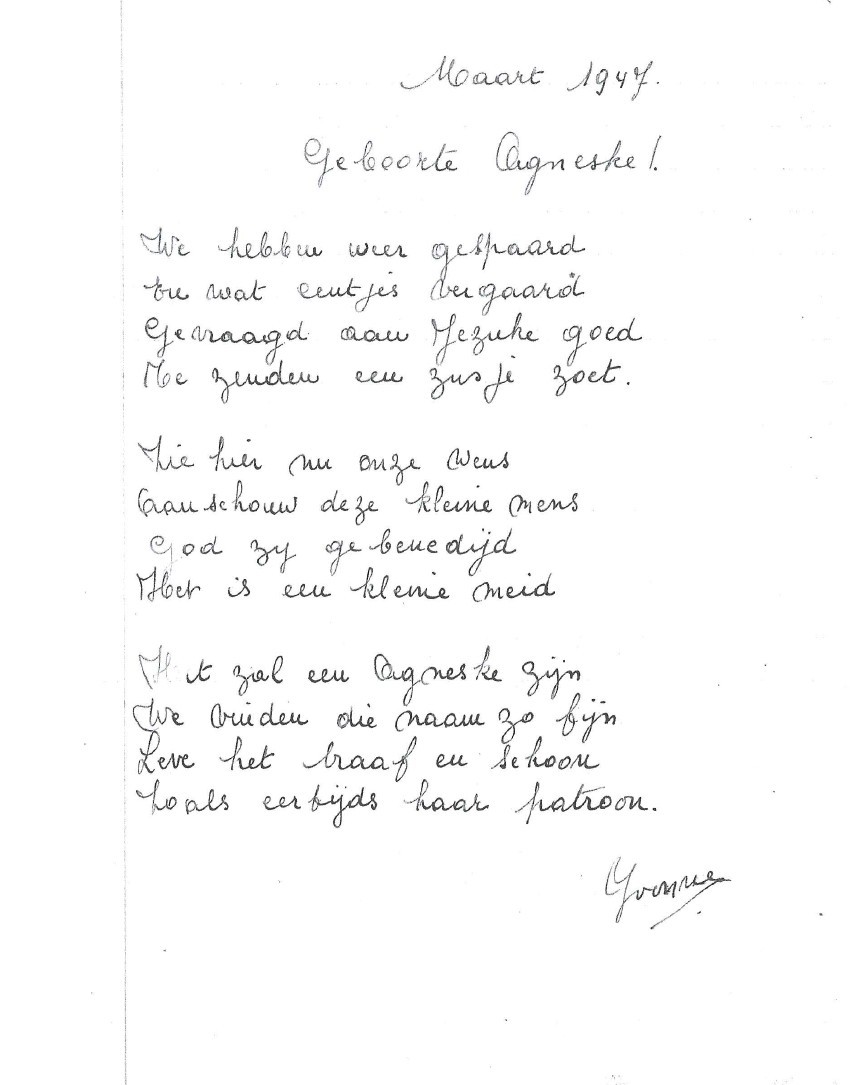 Maart 1947.
Geboorte Agneske!
We hebben weer gespaard
En wat centjes vergaard
Gevraagd aan Jezuke goed
Me zenden een zusje zoet.
Zie hier nu onze wens
Aanschouw deze kleine mens
God zij gebenedijd
Het is een kleine meid
Het zal een Agneske zijn
We vinden die naam zo fijn
Leve het braaf en schoon
Zoals eertijds haar patroon.
Yvonne